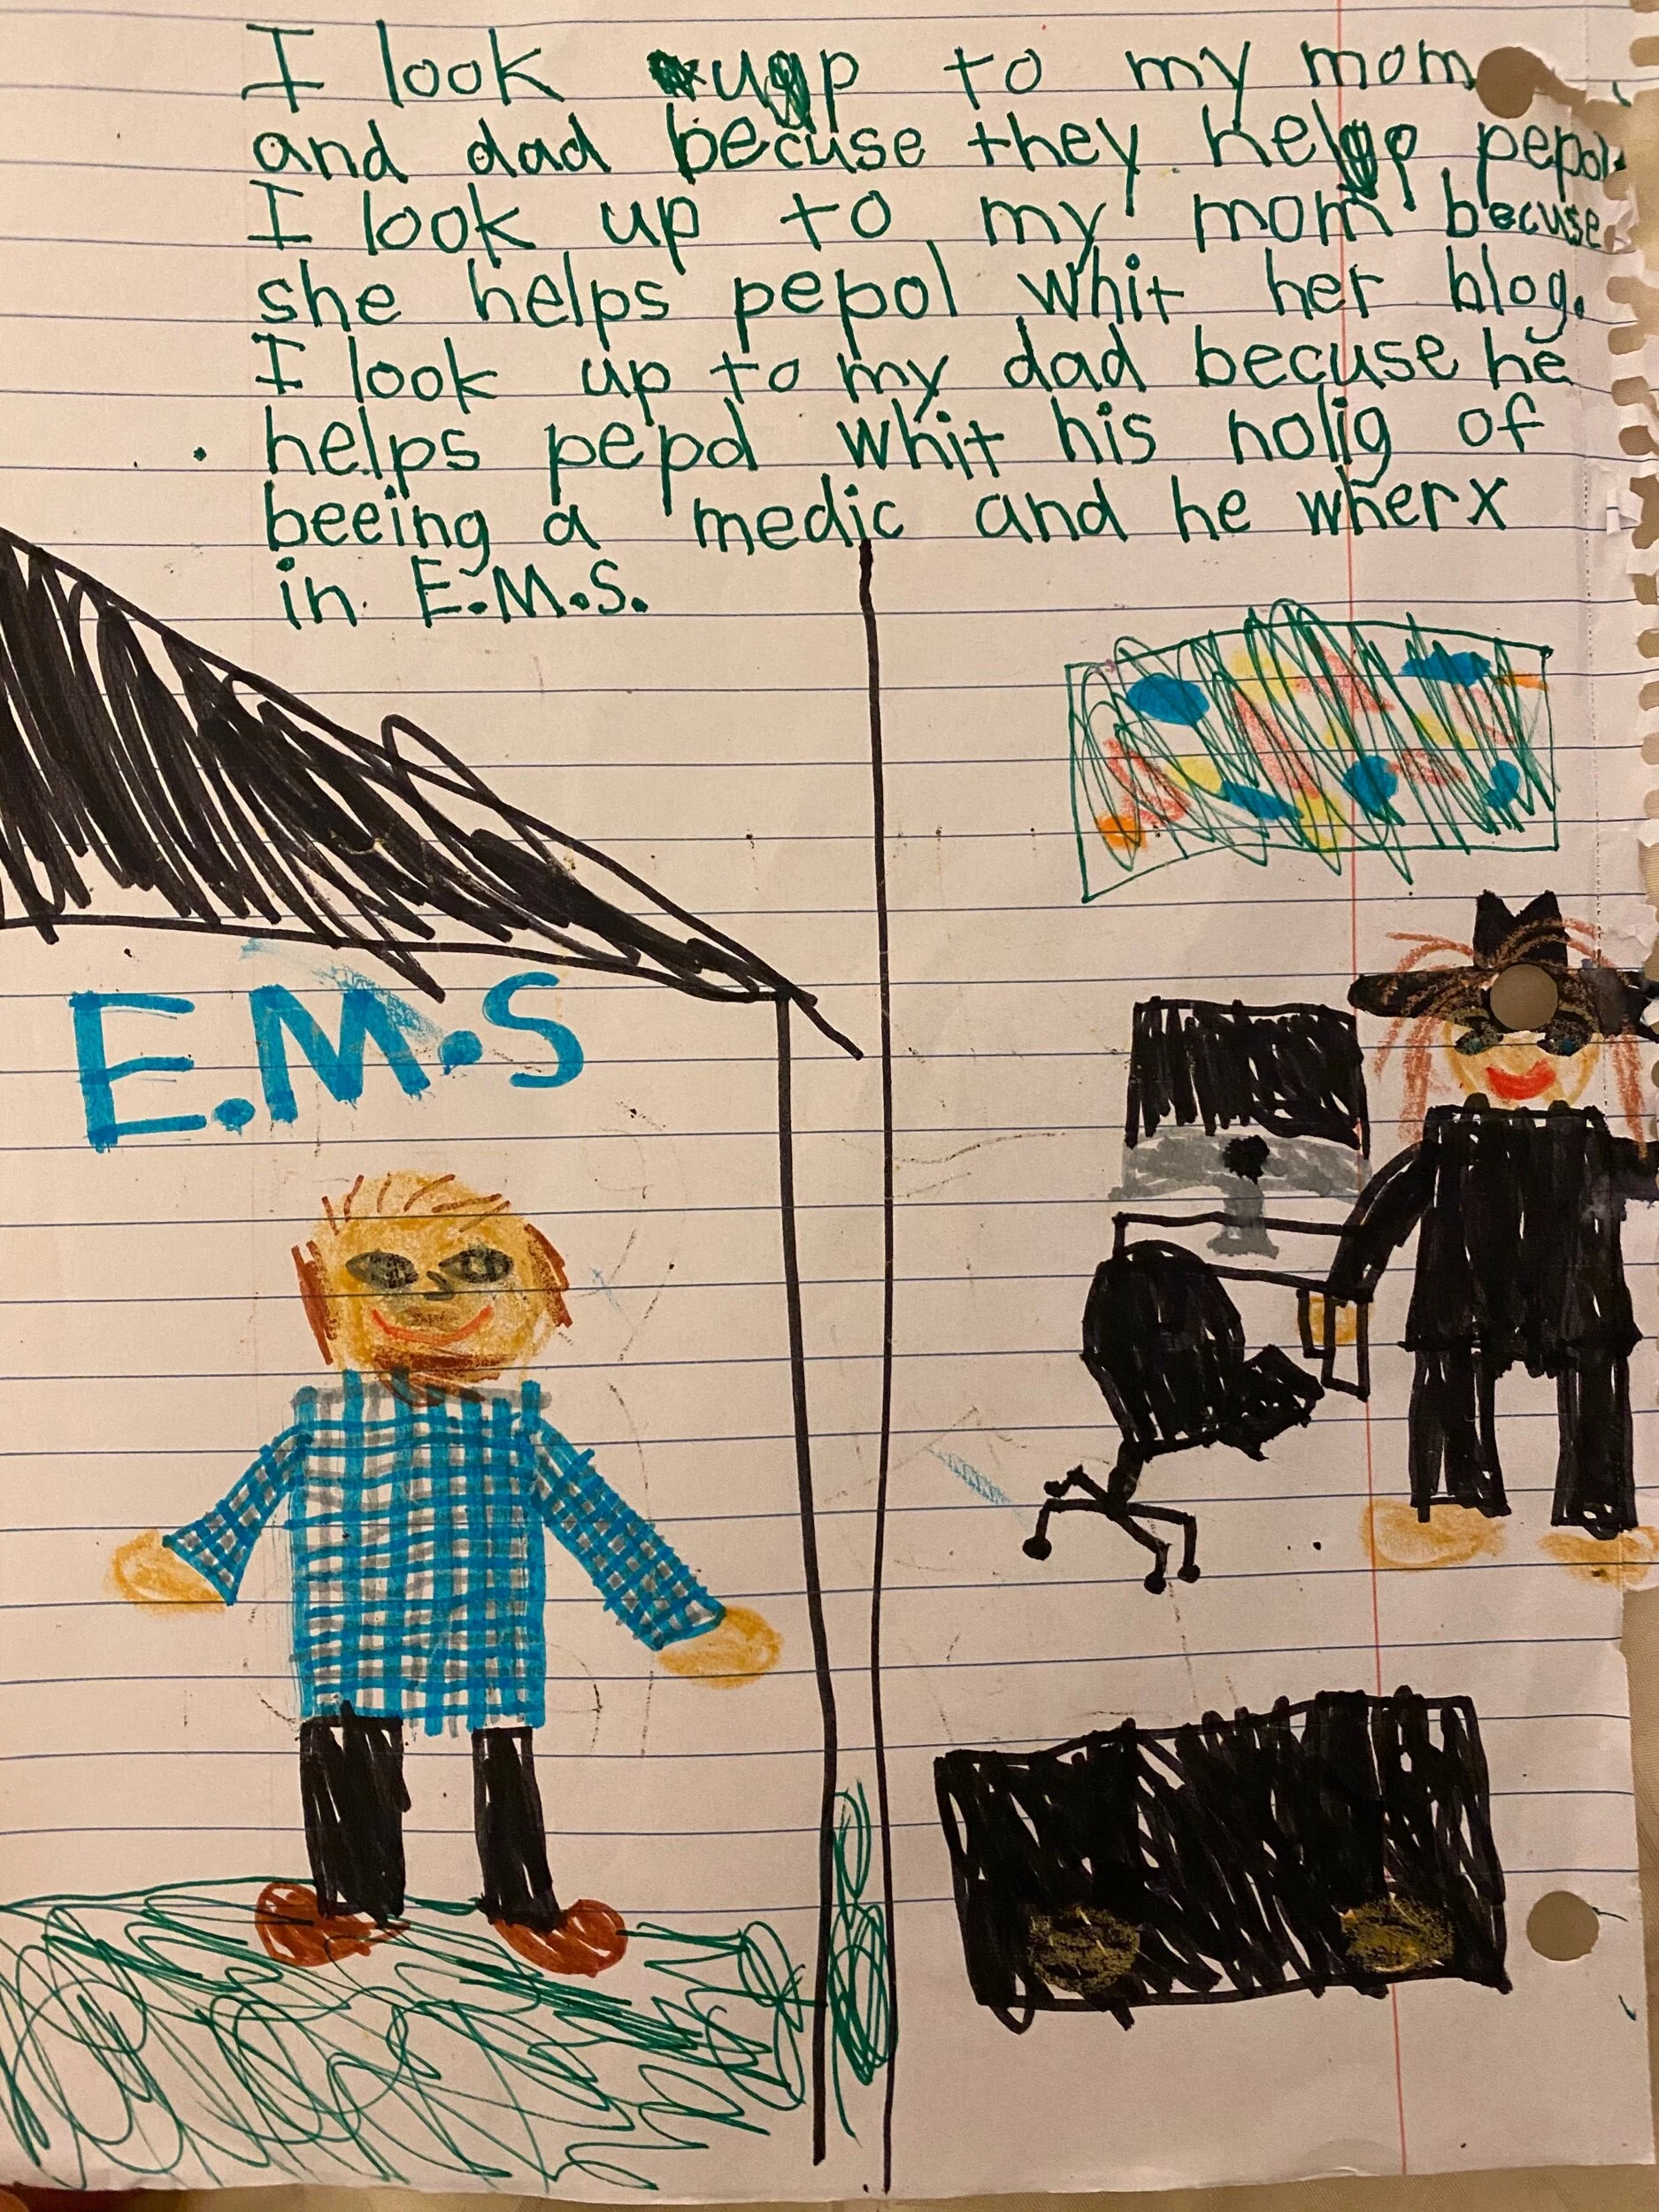 I look up to my mom
and dad becuse they help pepol.
I look up to my mom becuse
she helps pepol whit her blog.
I look up to my dad becuse he
helps pepol whit his nolig of
beeing a medic and he wherx
in E.M.S.
E.M.S